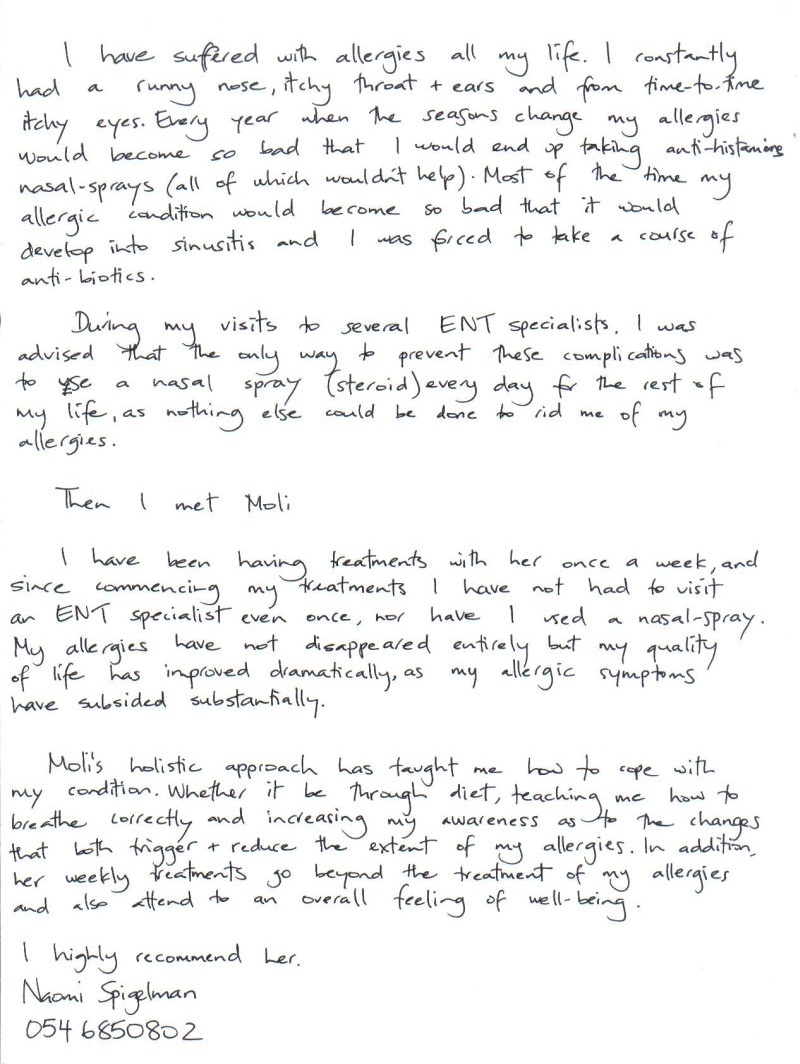 I have suffered with allergies all my life. I constantly
had a runny nose, itchy throat + ears and from time-to-time
itchy eyes. Every year when the seasons change my allergies
would become so bad that I would end up taking anti-histamins
nasal-sprays (all of which wouldn't help). Most of the time my
allergic condition would become so bad that it would
develop into sinusitis and I was forced to take a course of
anti-biotics.
During my visits to several ENT specialists, I was
advised that the only way to prevent these complications was
to use a nasal spray (steroid) every day for the rest of
my life, as nothing else could be done to rid me of my
allergies.
Then I met Moli
I have been having treatments with her once a week, and
since commencing my treatments I have not had to visit
an ENT specialist even once, nor have I used a nasal-spray.
My allergies have not disappeared entirely but my quality
of life has improved dramatically, as my allergic symptoms
have subsided substantially.
Moli's holistic approach has taught me how to cope with
my condition. Whether it be through diet, teaching me how to
breathe correctly and increasing my awareness as to the changes
that both trigger + reduce the extent of my allergies. In addition,
her weekly treatments go beyond the treatment of my allergies
and also attend to an overall feeling of well-being.
I highly recommend her.
Naomi Spigelman
054 6850802